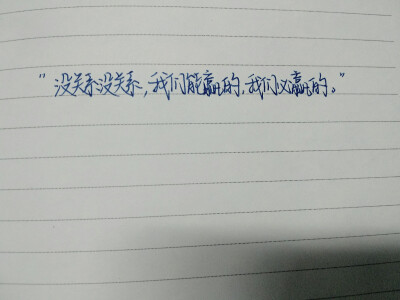 "没关系没关系,我们能赢的,我们必赢的。"